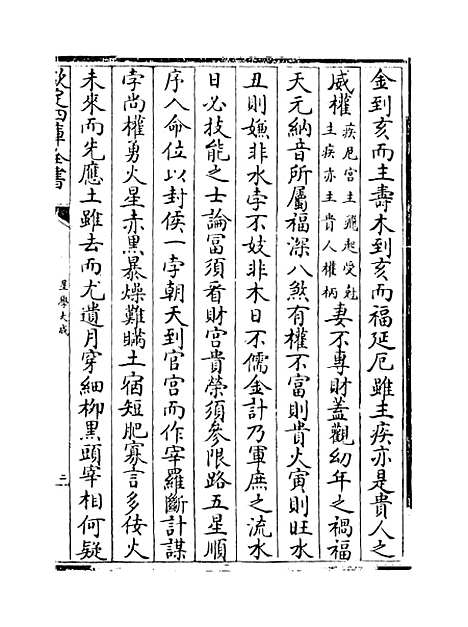 金到亥而主壽木到亥而福延厄雖主疾亦是貴人之
威權疾厄宮主飛起受尅主疾亦主貴人權柄妻不專財蓋觀幼年之禍福
天元納音所屬福深八煞有權不富則貴火寅則旺水
丑則嫌非水孛不妓非木日不儒金計乃軍庶之流水
日必技能之士論冨須看財宫貴榮須參限路五星順
序入命位以封侯一孛朝天到官宫而作宰羅斷計謀
孛尚權勇火星赤黑暴燥難瞞土宿短肥寡言多佞火
未來而先應土雖去而尤遺月穿細柳黒頭宰相何疑
欽定四庫全書
星學大成
三